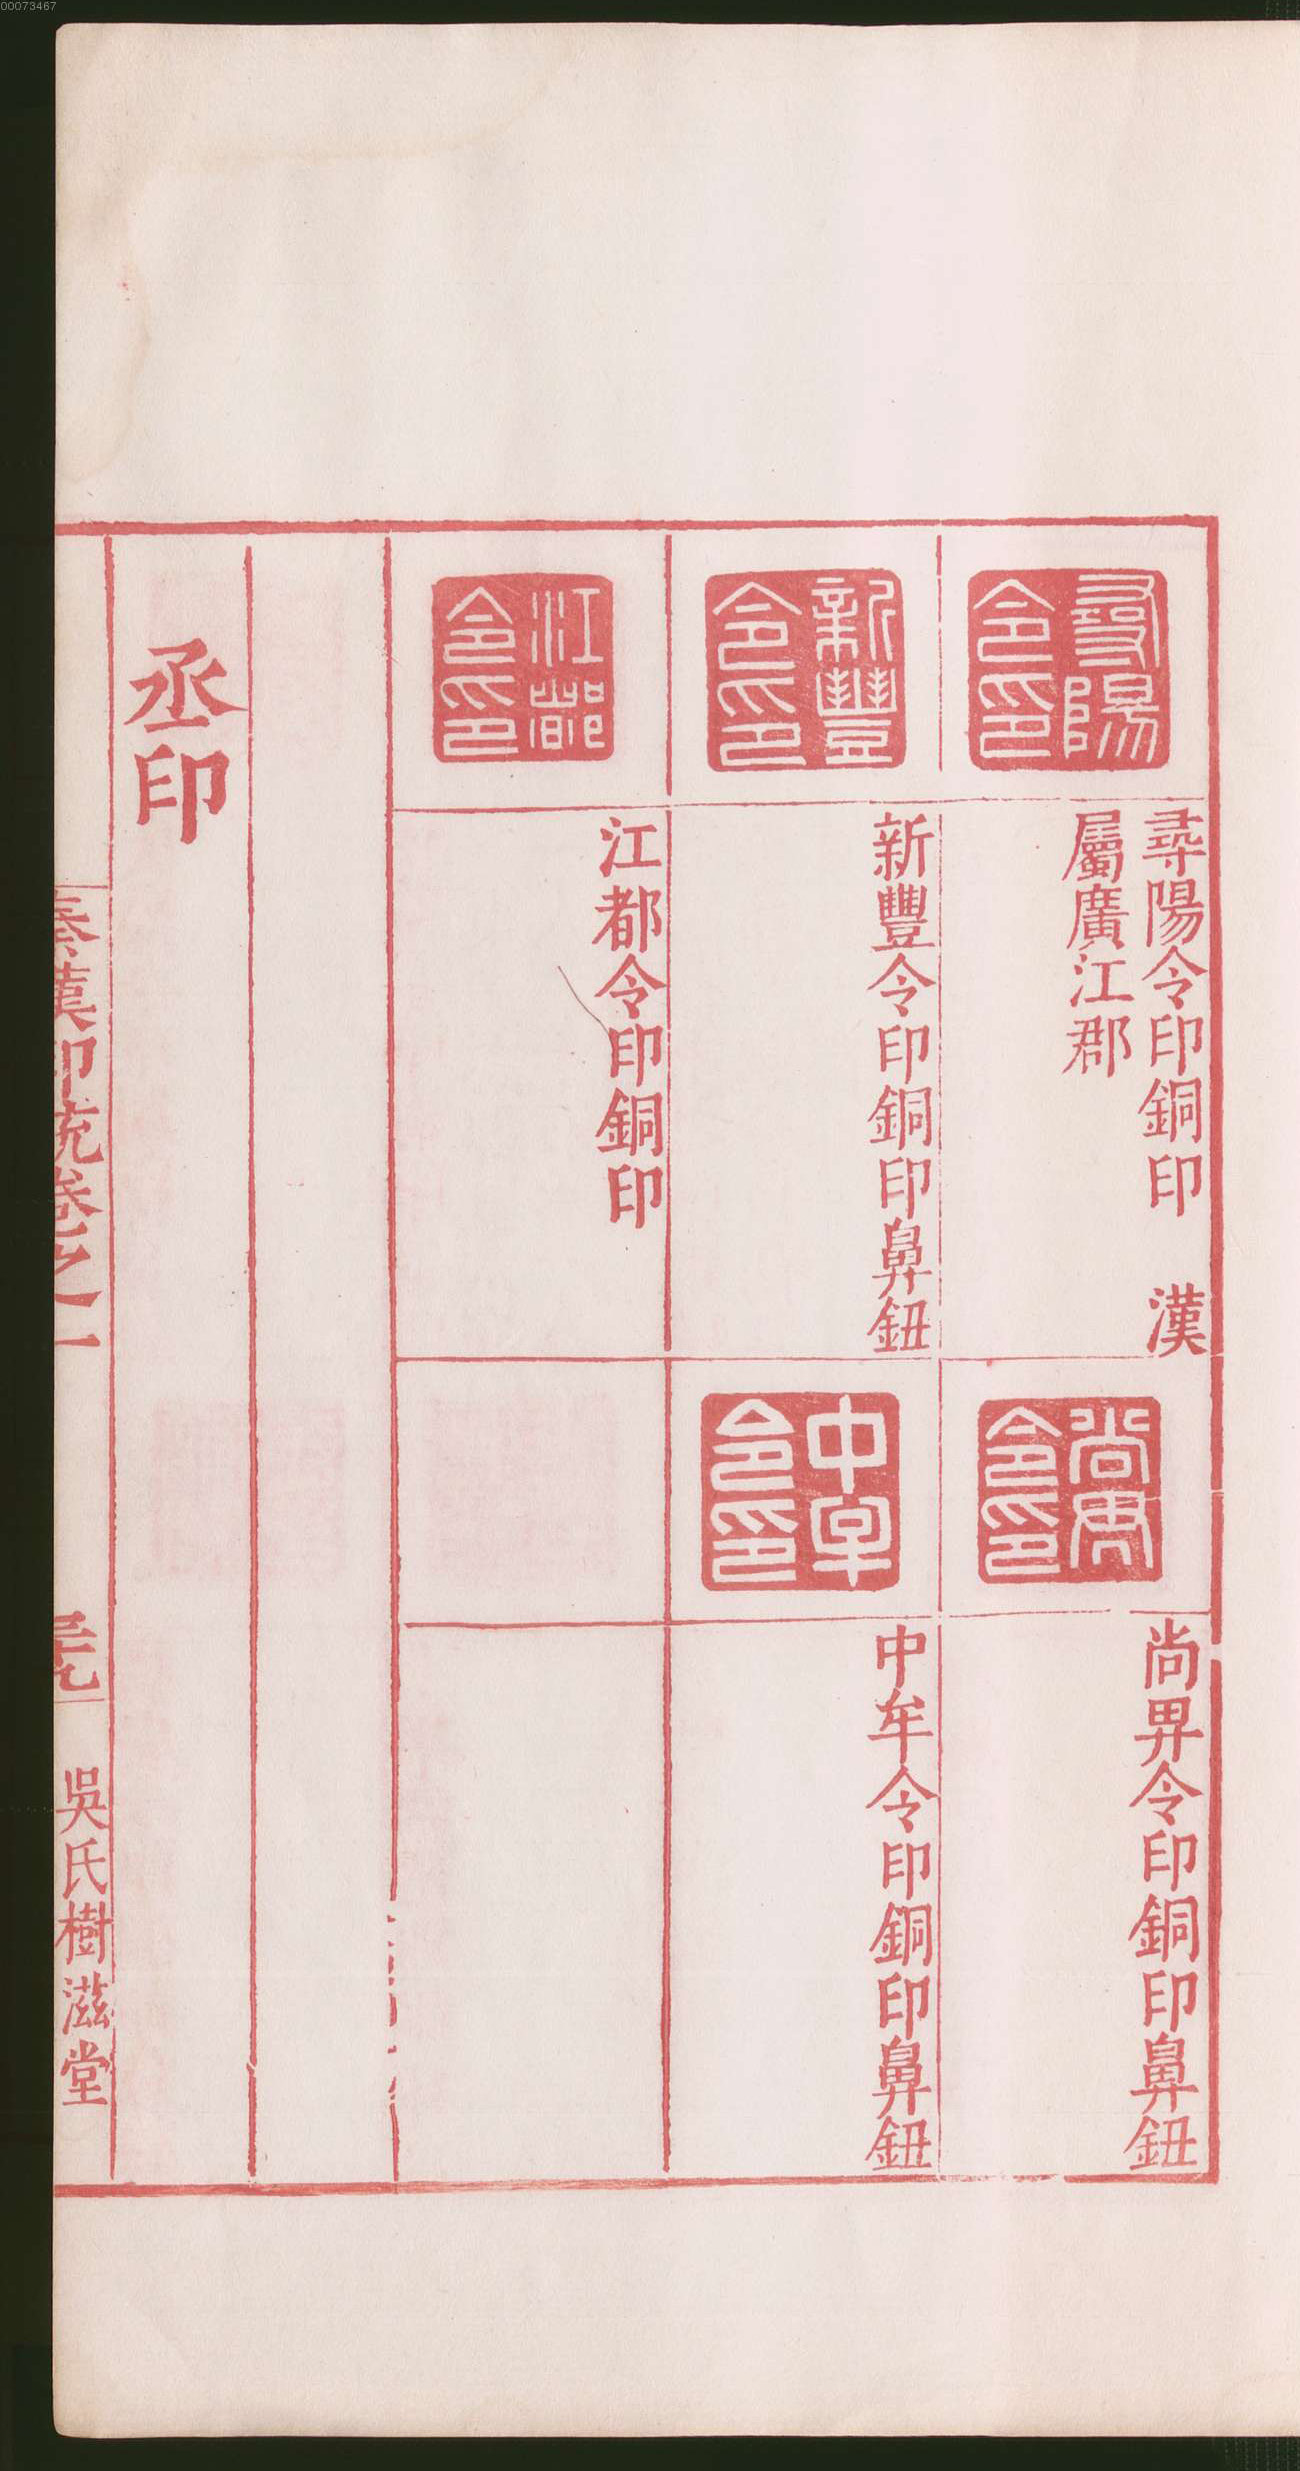 00073467
尋陽令印
尋陽令印銅印 漢
屬廣江郡
尚畁令印
尚畁令印銅印鼻鈕
新豐令印
新豐令印銅印鼻鈕
中牟令印
中牟令印銅印鼻鈕
江都令印
江都令印銅印
丞印
秦漢印統卷之一
吳氏樹滋堂